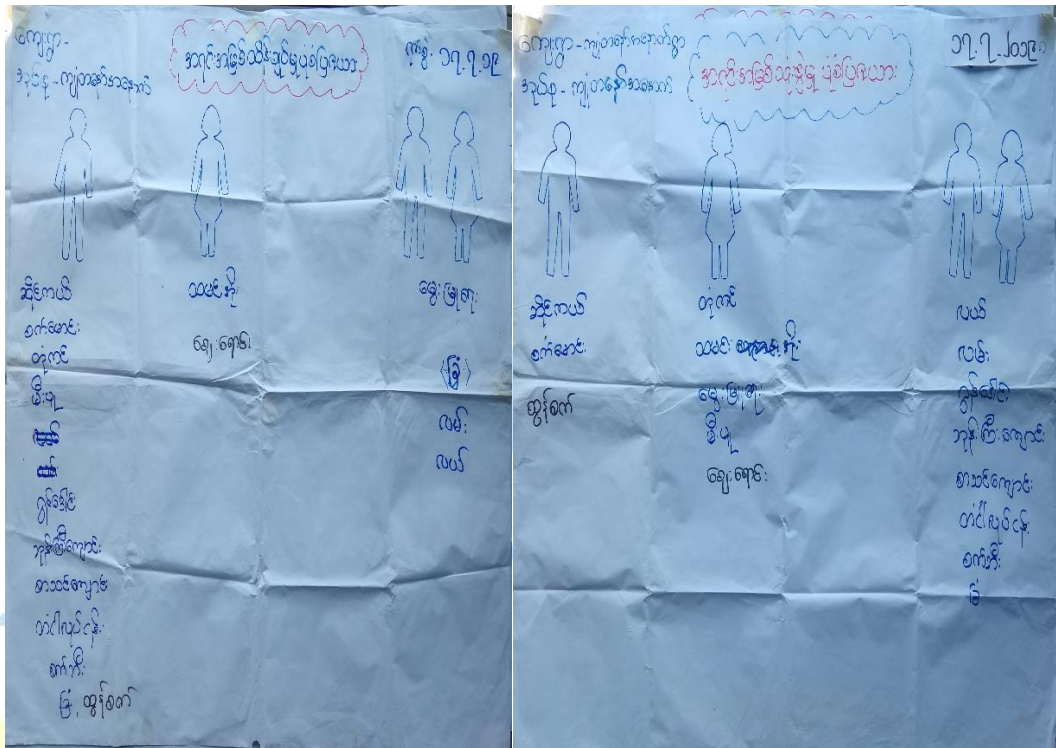 ကျေးရွာ -
အုပ်စု - ကျုံတနော်အနောက်
အရင်းအမြစ်ထိန်းချုပ်မှု ပုံစံပြဇယား
ရက်စွဲ - ၁၇.၇.၁၉
ဆိုင်ကယ်
စက်မောင်း
တုံကင်
မီးပူ
ဂွန်ဒေါင်း
ဘုန်းကြီးကျောင်း
စာသင်ကျောင်း
တံငါလုပ်ငန်း
စက်ဘီး
ခြံ, ထွန်စက်
ထမင်းအိုး
ချေးရောင်း
မွေးမြူရေး
(ခြံ)
လမ်း
လယ်
ကျေးရွာ - ကျုံတနော်အနောက်ရွာ
အုပ်စု - ကျုံတနော်အနောက်
အရင်းအမြစ်သုံးစွဲမှု ပုံစံပြဇယား
၁၇.၇.၂၀၁၉
ဆိုင်ကယ်
စက်မောင်း
ထွန်စက်
တုံကင်
ထမင်းအိုး
မွေးမြူရေး
မီးပူ
ချေးရောင်း
လယ်
လမ်း
ဂွန်ဒေါင်း
ဘုန်းကြီးကျောင်း
စာသင်ကျောင်း
တံငါလုပ်ငန်း
စက်ဘီး
ခြံ